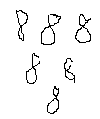 8 8 8
8 8
8